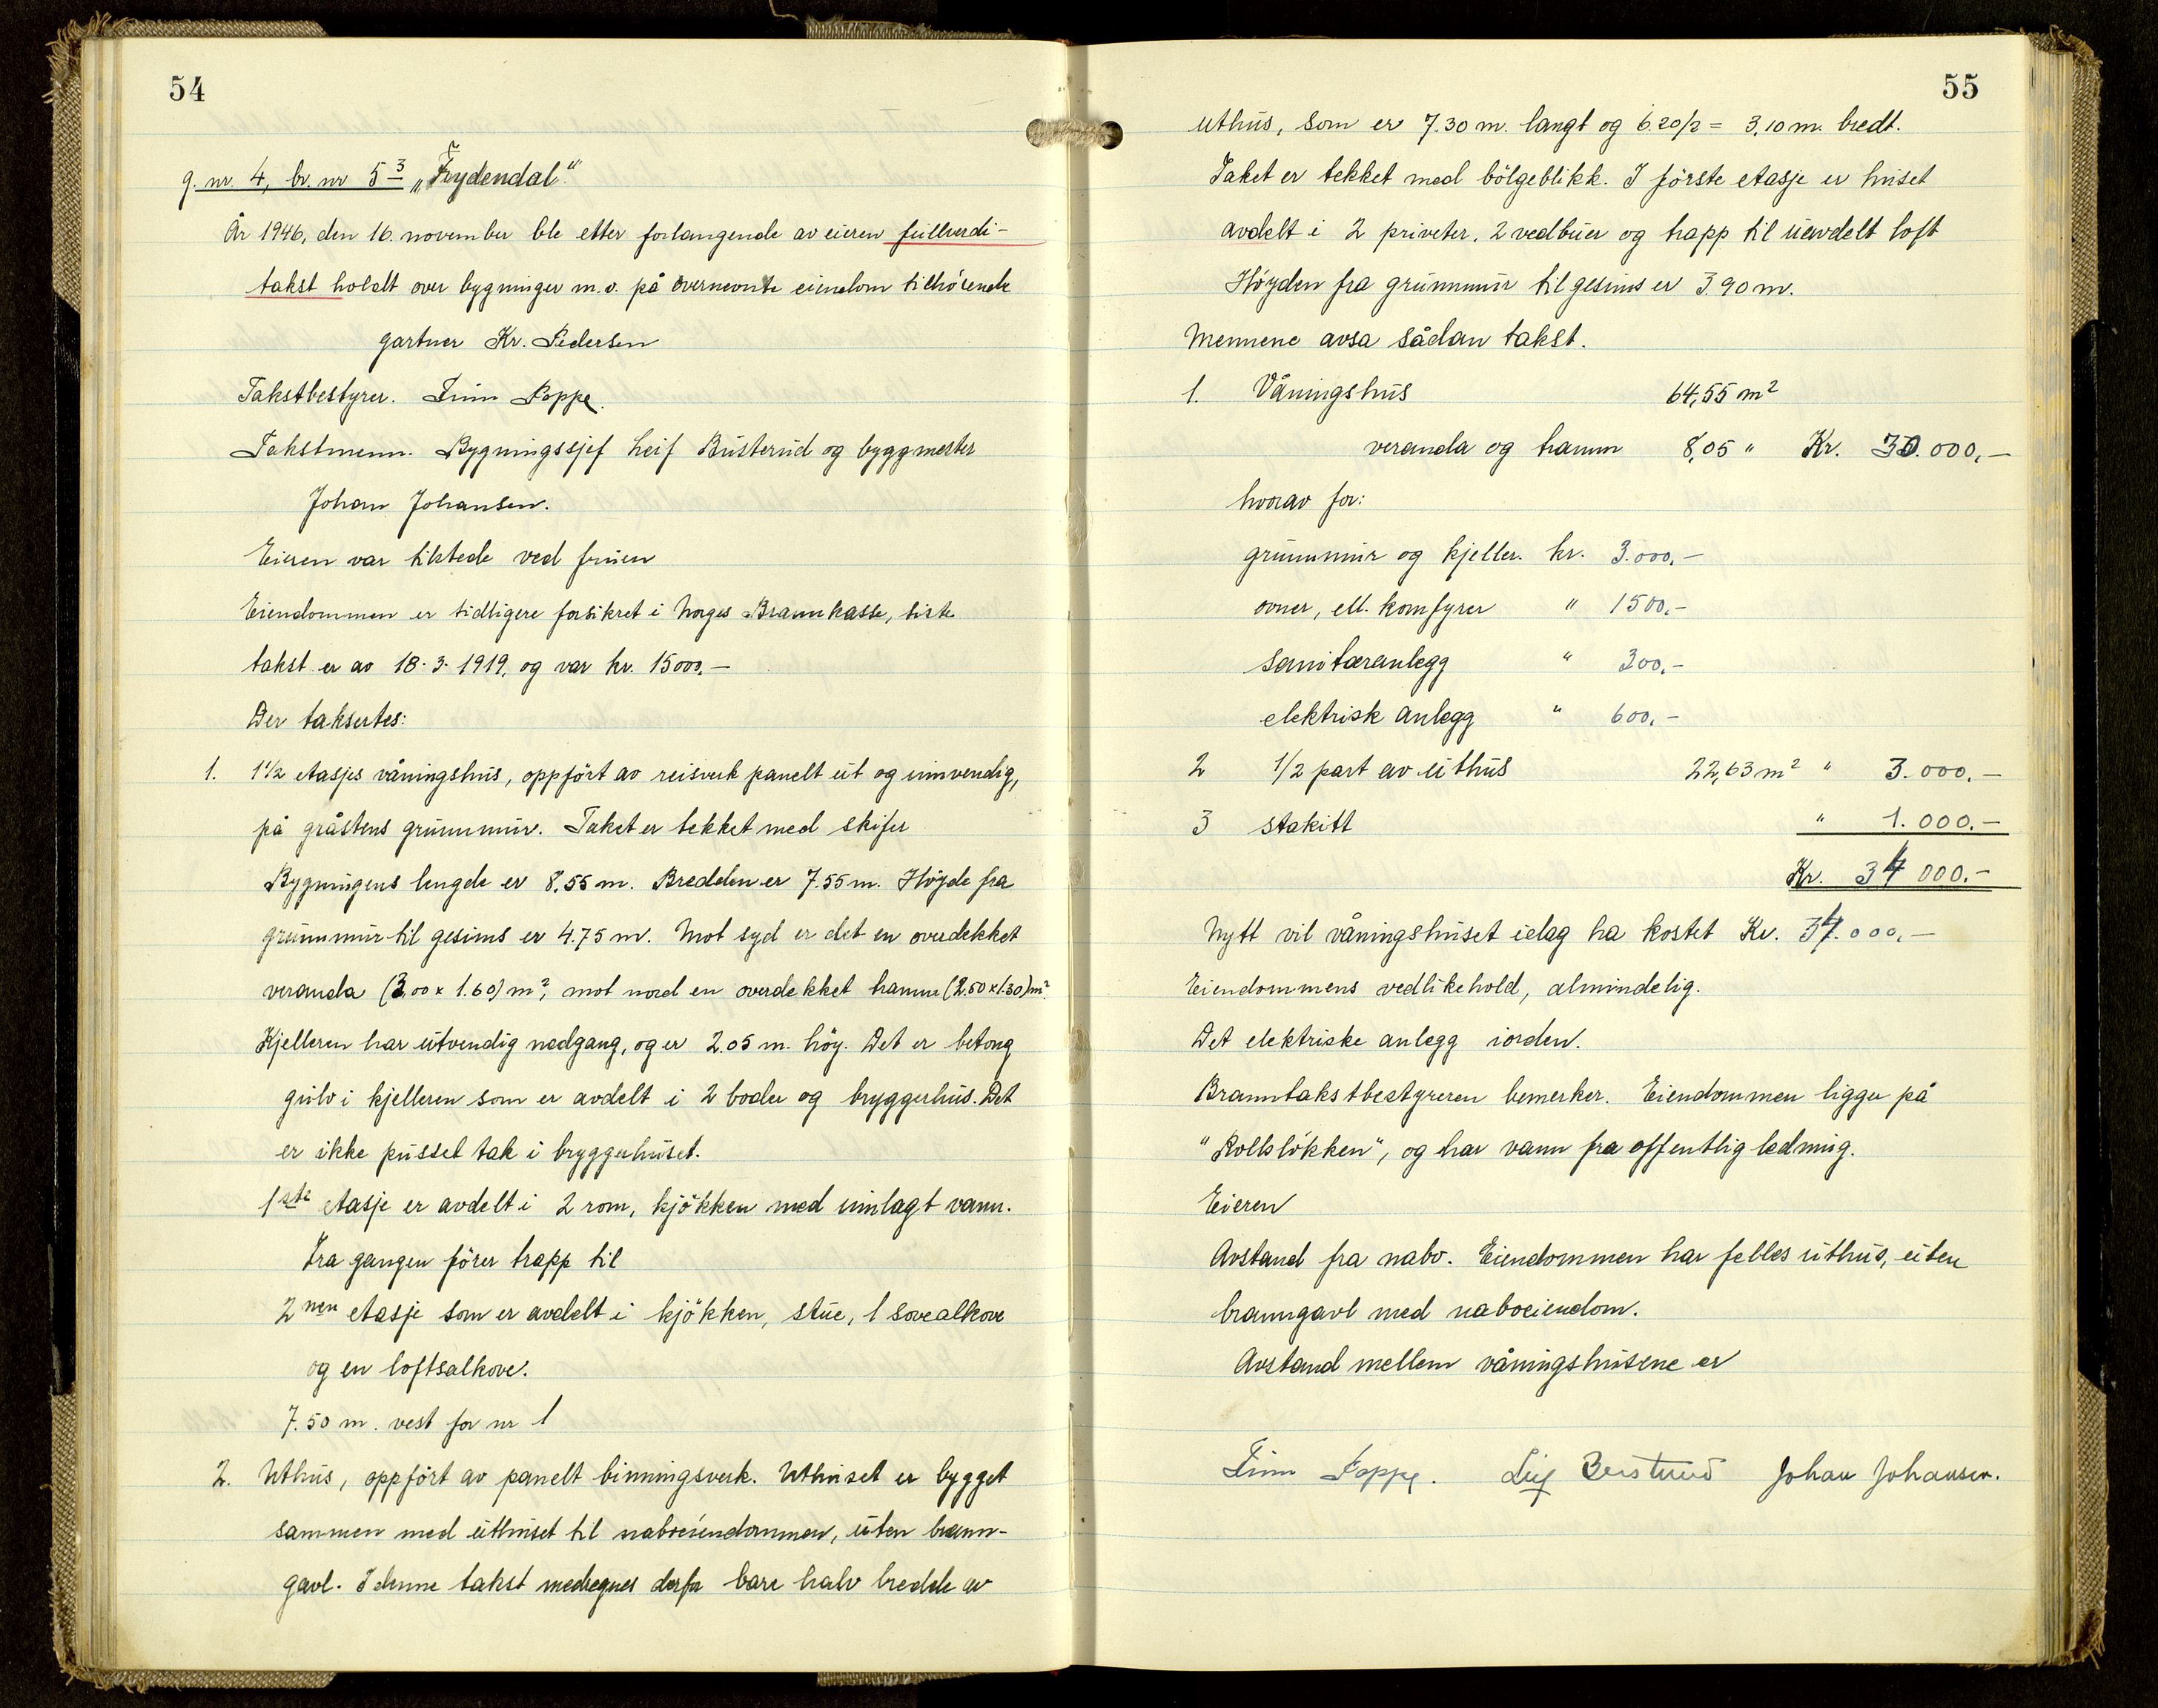 54
g. nr. 4, br. nr 5³ „Frydendal"
År 1946, den 16. november ble etter forlangende av eieren fullverdi-
takst holdt over bygninger m.v. på overnevnte eiendom tilhörende
gartner Kr. Pedersen
Takstbestyrer. Finn Poppe.
Takstmenn. Bygningssjef Leif Busterud og byggmester
Johan Johansen.
Eieren var tilstede ved fruen
Eiendommen er tidligere forsikret i Norges Brannkasse, siste
takst er av 18-3-1919, og var kr. 15000,-
Der taksertes:
1. 1 1/2 etasjes våningshus, oppfört av reisverk panelt ut og innvendig,
på gråstens grunnmur. Taket er tekket med skifer
Bygningens lengde er 8.55 m. Bredden er 7.55 m. Höyde fra
grunnmur til gesims er 4.75 m. Mot syd er det en overdekket
veranda (3,00 x 1.60) m², mot nord en overdekket tramm (2.50 x 1.30) m².
Kjelleren har utvendig nedgang, og er 2.05 m. höy. Det er betong
gulv i kjelleren som er avdelt i 2 boder og bryggerhus. Det
er ikke pusset tak i bryggerhuset.
1ste etasje er avdelt i 2 rom, kjökken med innlagt vann.
Fra gangen förer trapp til
2nen etasje som er avdelt i kjökken, stue, 1 sovealkove
og en loftsalkove.
7.50 m. vest for nr 1
2. Uthus, oppfört av panelt binningsverk. Uthuset er bygget
sammen med uthuset til naboeiendommen, uten brann-
gavl. I denne takst medregnes derfor bare halv bredde av
55
uthus, som er 7.30 m. langt og 6.20/2 = 3.10 m. bredt.
Taket er tekket med bölgeblikk. I förste etasje er huset
avdelt i 2 priveter, 2 vedbuer og trapp til uavdelt loft
Höyden fra grunnmur til gesims er 3.90 m.
Mennene avsa sådan takst.
1. Våningshus 64,55 m²
veranda og tramm 8,05 " Kr. 30.000,-
hvorav for:
grunnmur og kjeller. kr. 3.000,-
ovner, ell. komfyrer " 1500,-
sanitæranlegg " 300,-
elektrisk anlegg " 600,-
2 1/2 part av uthus 22,63 m² " 3.000,-
3 stakitt " 1.000.-
Kr. 34 000.-
Nytt vil våningshuset idag ha kostet Kr. 34.000,-
Eiendommens vedlikehold, almindelig.
Det elektriske anlegg iorden.
Branntakstbestyreren bemerker. Eiendommen ligger på
"Rollslökken", og har vann fra offentlig ledning.
Eieren
Avstand fra nabo. Eiendommen har felles uthus, uten
branngavl med naboeiendom.
Avstand mellem våningshusene er
Finn Poppe. Leif Busterud Johan Johansen.